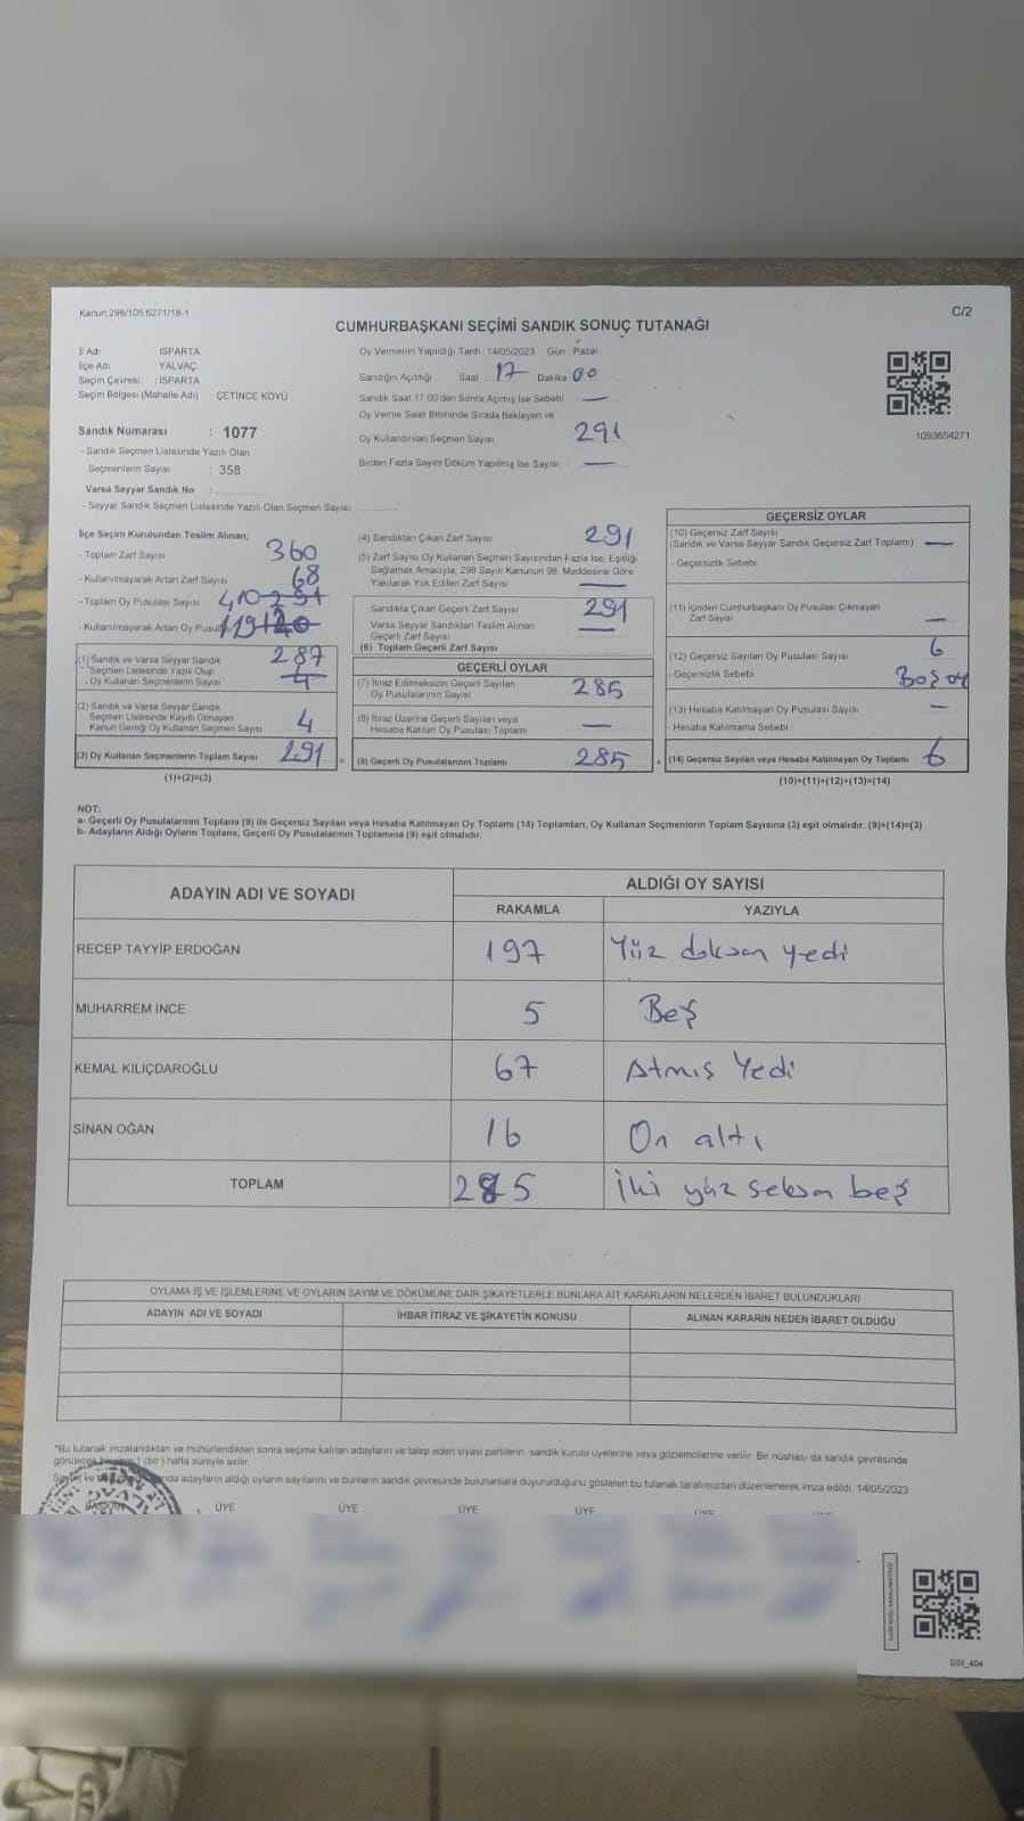 Kanun:298/105,6271/18-1
C/2
CUMHURBAŞKANI SEÇİMİ SANDIK SONUÇ TUTANAĞI
İl Adı ISPARTA
İlçe Adı YALVAÇ
Seçim Çevresi : ISPARTA
Seçim Bölgesi (Mahalle Adı) : ÇETİNCE KÖYÜ
Sandık Numarası : 1077
- Sandık Seçmen Listesinde Yazılı Olan
Seçmenlerin Sayısı : 358
Varsa Seyyar Sandık No :
- Seyyar Sandık Seçmen Listesinde Yazılı Olan Seçmen Sayısı
Oy Vermenin Yapıldığı Tarih : 14/05/2023 Gün : Pazar
Sandığın Açıldığı Saat 17 Dakika 00
Sandık Saat 17:00'den Sonra Açılmış İse Sebebi —
Oy Verme Saat Bitiminde Sırada Bekleyen ve
Oy Kullandırılan Seçmen Sayısı 291
Birden Fazla Sayım Döküm Yapılmış İse Sayısı —
1093654271
İlçe Seçim Kurulundan Teslim Alınan;
- Toplam Zarf Sayısı 360
- Kullanılmayarak Artan Zarf Sayısı 68
- Toplam Oy Pusulası Sayısı 410
- Kullanılmayarak Artan Oy Pusulası 119
(1) Sandık ve Varsa Seyyar Sandık 287
Seçmen Listesinde Yazılı Olup
Oy Kullanan Seçmenlerin Sayısı
(2) Sandık ve Varsa Seyyar Sandık
Seçmen Listesinde Kayıtlı Olmayan
Kanun Gereği Oy Kullanan Seçmen Sayısı 4
(3) Oy Kullanan Seçmenlerin Toplam Sayısı 291
(1)+(2)=(3)
(4) Sandıktan Çıkan Zarf Sayısı 291
(5) Zarf Sayısı Oy Kullanan Seçmen Sayısından Fazla İse, Eşitliği
Sağlamak Amacıyla, 298 Sayılı Kanunun 98. Maddesine Göre
Yakılarak Yok Edilen Zarf Sayısı —
Sandıkta Çıkan Geçerli Zarf Sayısı 291
Varsa Seyyar Sandıktan Teslim Alınan
Geçerli Zarf Sayısı —
(6) Toplam Geçerli Zarf Sayısı
GEÇERLİ OYLAR
(7) İtiraz Edilmeksizin Geçerli Sayılan
Oy Pusulalarının Sayısı 285
(8) İtiraz Üzerine Geçerli Sayılan veya
Hesaba Katılan Oy Pusulası Toplamı —
(9) Geçerli Oy Pusulalarının Toplamı 285
GEÇERSİZ OYLAR
(10) Geçersiz Zarf Sayısı
(Sandık ve Varsa Seyyar Sandık Geçersiz Zarf Toplamı) —
- Geçersizlik Sebebi
(11) İçinden Cumhurbaşkanı Oy Pusulası Çıkmayan
Zarf Sayısı —
(12) Geçersiz Sayılan Oy Pusulası Sayısı 6
- Geçersizlik Sebebi Boş oy
(13) Hesaba Katılmayan Oy Pusulası Sayısı —
- Hesaba Katılmama Sebebi
(14) Geçersiz Sayılan veya Hesaba Katılmayan Oy Toplamı 6
(10)+(11)+(12)+(13)=(14)
NOT:
a- Geçerli Oy Pusulaların Toplamı (9) ile Geçersiz Sayılan veya Hesaba Katılmayan Oy Toplamı (14) Toplamları, Oy Kullanan Seçmenlerin Toplam Sayısına (3) eşit olmalıdır. (9)+(14)=(3)
b- Adayların Aldığı Oyların Toplamı, Geçerli Oy Pusulalarının Toplamına (9) eşit olmalıdır.
ADAYIN ADI VE SOYADI ALDIĞI OY SAYISI
RAKAMLA YAZIYLA
RECEP TAYYİP ERDOĞAN 197 Yüz doksan yedi
MUHARREM İNCE 5 Beş
KEMAL KILIÇDAROĞLU 67 Atmış Yedi
SİNAN OĞAN 16 On altı
TOPLAM 285 İki yüz seksen beş
OYLAMA İŞ VE İŞLEMLERİNE VE OYLARIN SAYIM VE DÖKÜMÜNE DAİR ŞİKAYETLERLE BUNLARA AİT KARARLARIN NELERDEN İBARET BULUNDUKLARI
ADAYIN ADI VE SOYADI İHBAR İTİRAZ VE ŞİKAYETİN KONUSU ALINAN KARARIN NEDEN İBARET OLDUĞU
"Bu tutanak imzalandıktan ve mühürlendikten sonra seçime katılan adayların ve talep eden siyasi partilerin, sandık kurulu üyelerine veya gözlemcilerine verilir. Bir nüshası da sandık çevresinde
1 (bir) hafta süreyle asılır.
adayların aldığı oyların sayılarını ve bunların sandık çevresinde bulunanlara duyurulduğunu gösteren bu tutanak tarafımızdan düzenlenerek imza edildi. 14/05/2023
BAŞKAN ÜYE ÜYE ÜYE ÜYE